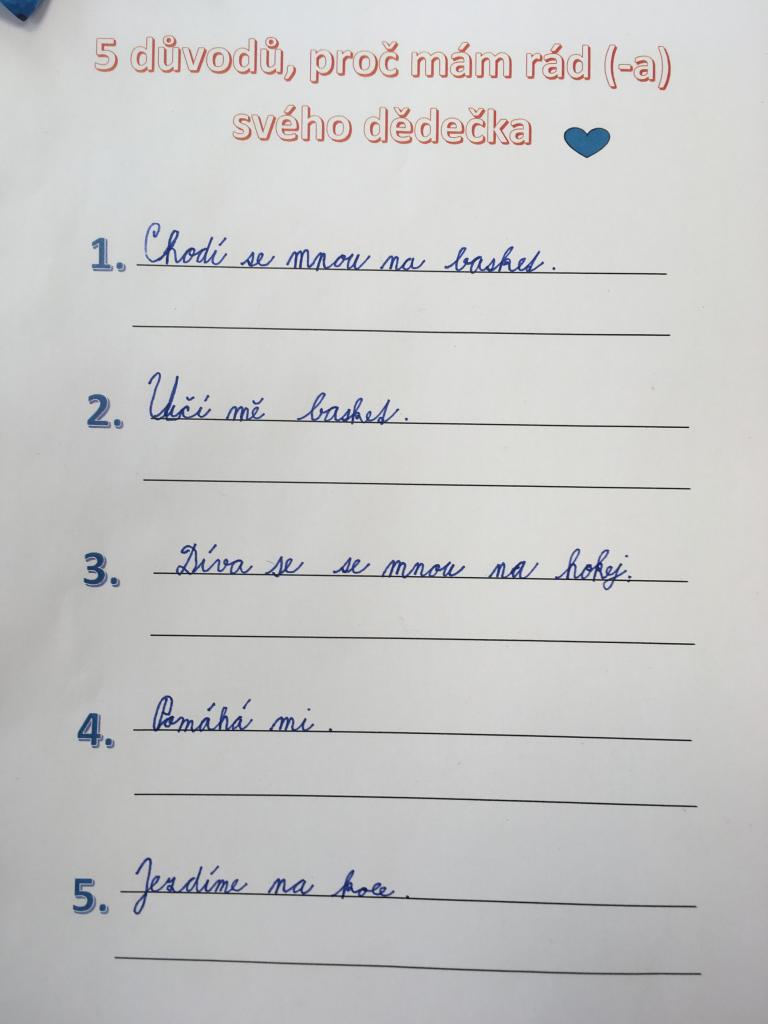 5 důvodů, proč mám rád (-a)
svého dědečka
1. Chodí se mnou na basket.
2. Učí mě basket.
3. Díva se se mnou na hokej.
4. Pomáhá mi.
5. Jezdíme na kole.